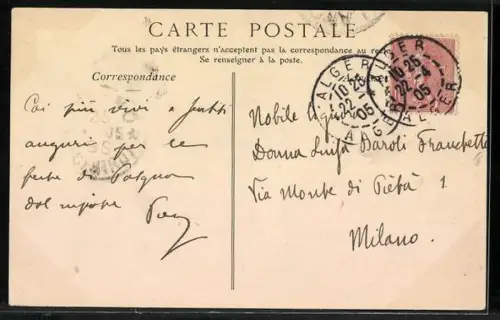 CARTE POSTALE
Tous les pays étrangers n'acceptent pas la correspondance au
Se renseigner à la poste.
Correspondance
Coi più vivi e
auguri per le
feste di Pasqua
dal
ALGER
10 25
22 - 4
05
ALGER
ALGER
10 25
22 - 4
05
ALGER
Nobile Signora
Donna Luisa Baroli Franchetti
Via Monte di Pietà 1
Milano.